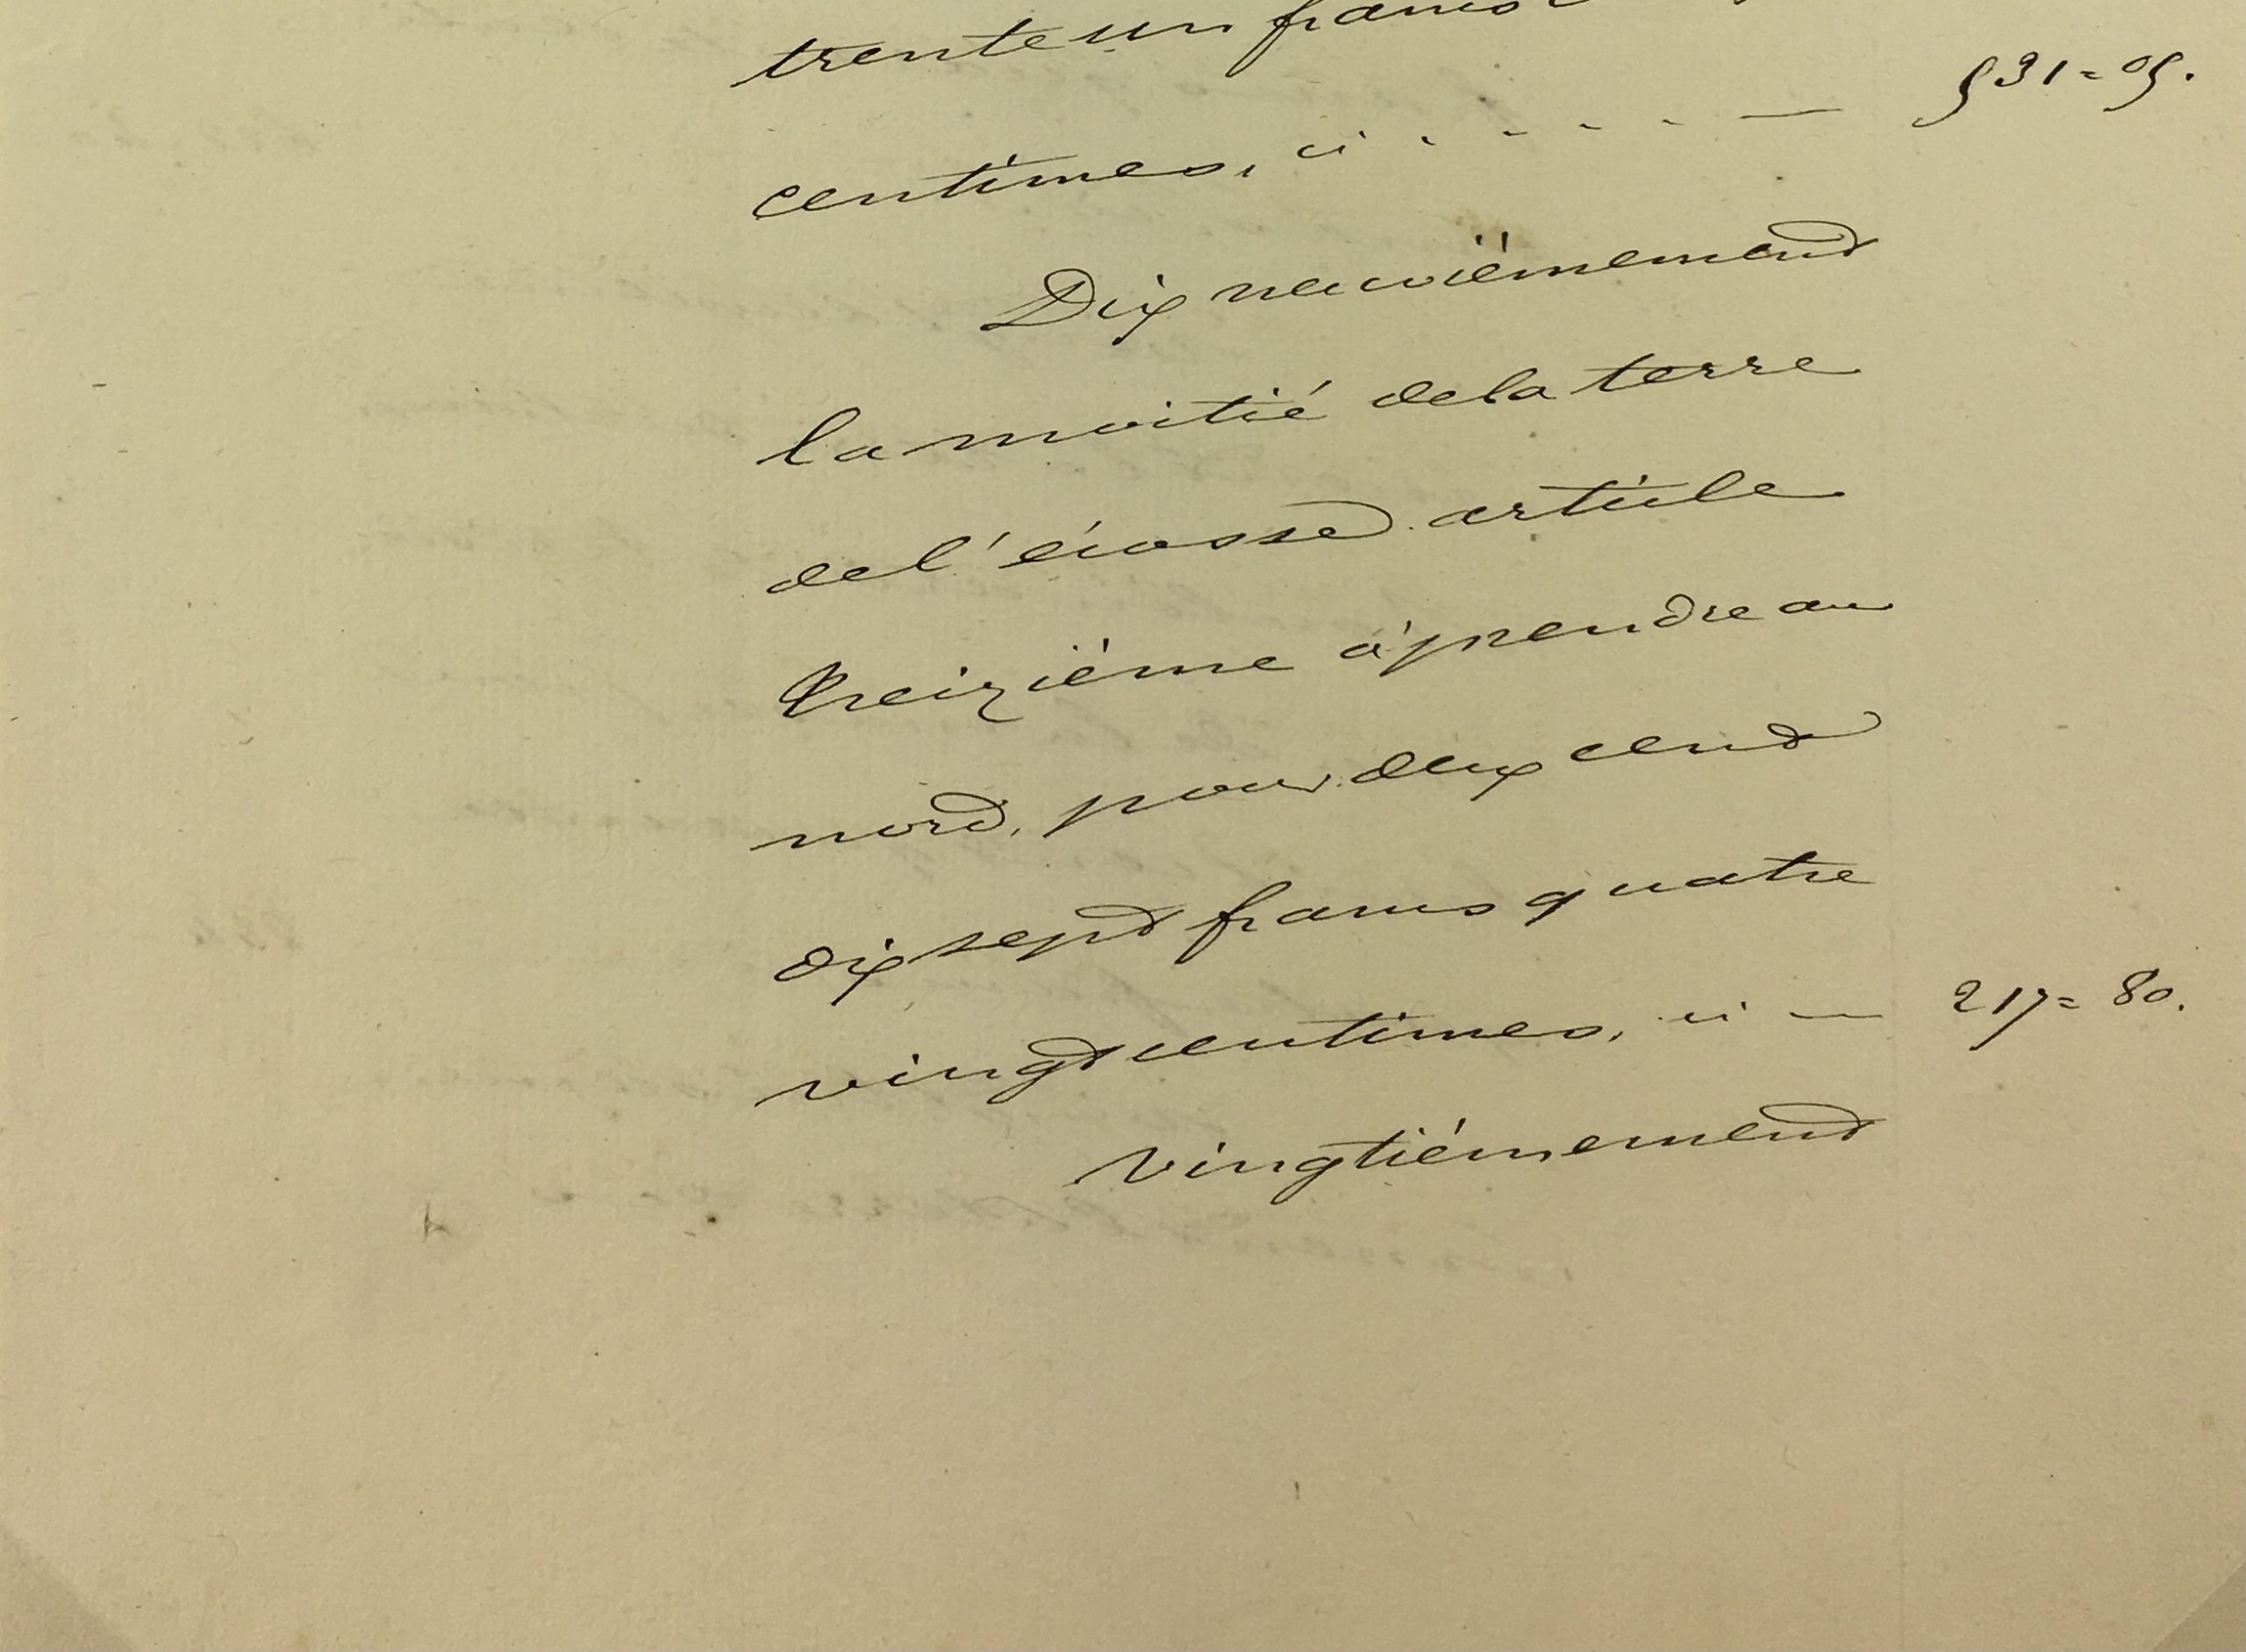 trente un francs
centimes, ci . - - - - — 531=05.
Dix neuvièmement
la moitié de la terre
de l'écosse article
treizième à prendre au
nord, pour deux cent
dix sept francs quatre
vingt centimes, ci — 217=80.
Vingtièmement